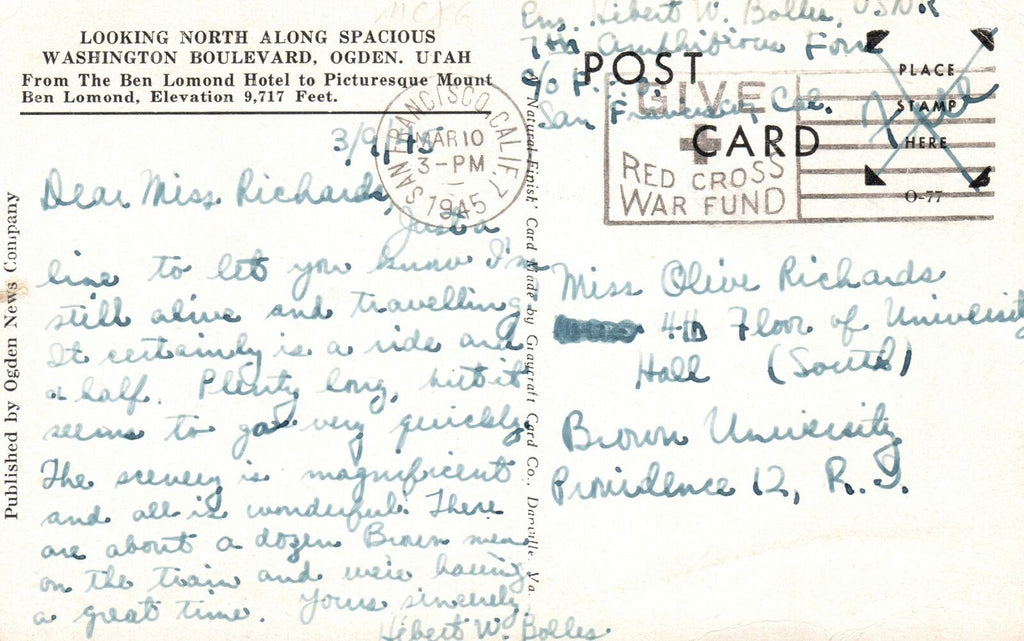 LOOKING NORTH ALONG SPACIOUS
WASHINGTON BOULEVARD, OGDEN. UTAH
From The Ben Lomond Hotel to Picturesque Mount
Ben Lomond, Elevation 9,717 Feet.
3/9/45
Dear Miss Richards,
Just a
line to let you know I'm
still alive and travelling.
It certainly is a ride and
a half. Plenty long, but it
seems to go very quickly.
The scenery is magnificent
and all is wonderful. There
are about a dozen Brown men
on the train and we're having
a great time. Yours sincerely,
Hebert W. Bolles
Published by Ogden News Company
"Natural Finish" Card Made by Graycraft Card Co., Danville, Va.
SAN FRANCISCO, CALIF. 7
MAR 10
3-PM
1945
Ens. Hebert W. Bolles, USNR
7th Amphibious Force
c/o F.
San Francisco, Cal.
POST
CARD
GIVE
RED CROSS
WAR FUND
PLACE
STAMP
HERE
O-77
Free
Miss Olive Richards
4th Floor of University
Hall (South)
Brown University
Providence 12, R.I.